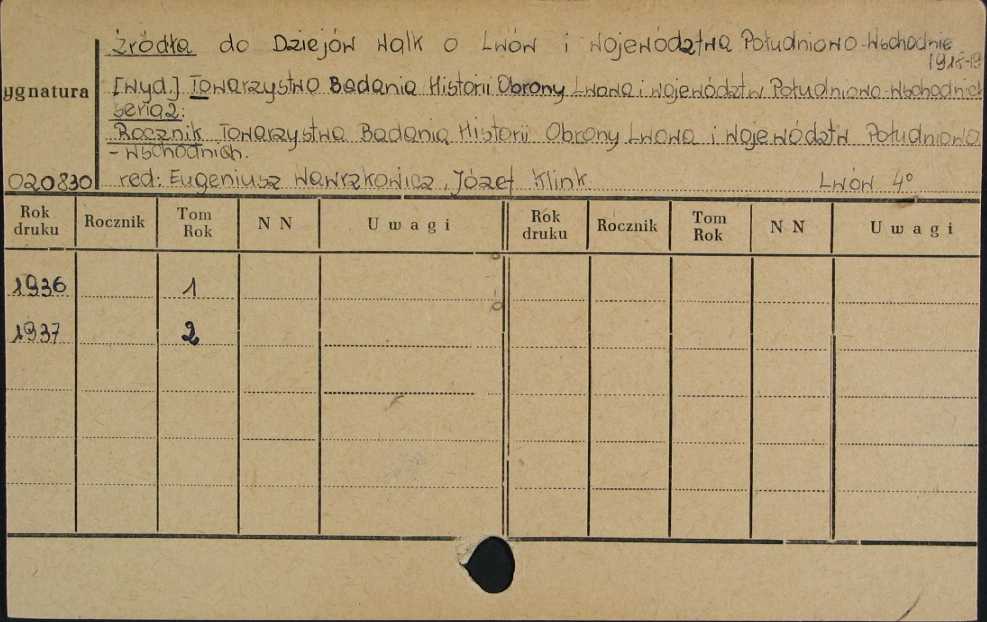 Źródła do Dziejów Walk o Lwów i Województwa Południowo-Wschodnie
1918-19
ygnatura
[wyd.] Towarzystwo Badania Historii Obrony Lwowa i województw Południowo-Wschodnich
Seria 2:
Rocznik Towarzystwa Badania Historii Obrony Lwowa i województw Południowo
-Wschodnich.
020830 red: Eugeniusz Wawrzkowicz, Józef Klink. Lwów 4°
Rok druku Rocznik Tom Rok N N Uwagi Rok druku Rocznik Tom Rok N N Uwagi
1936 1
1937 2